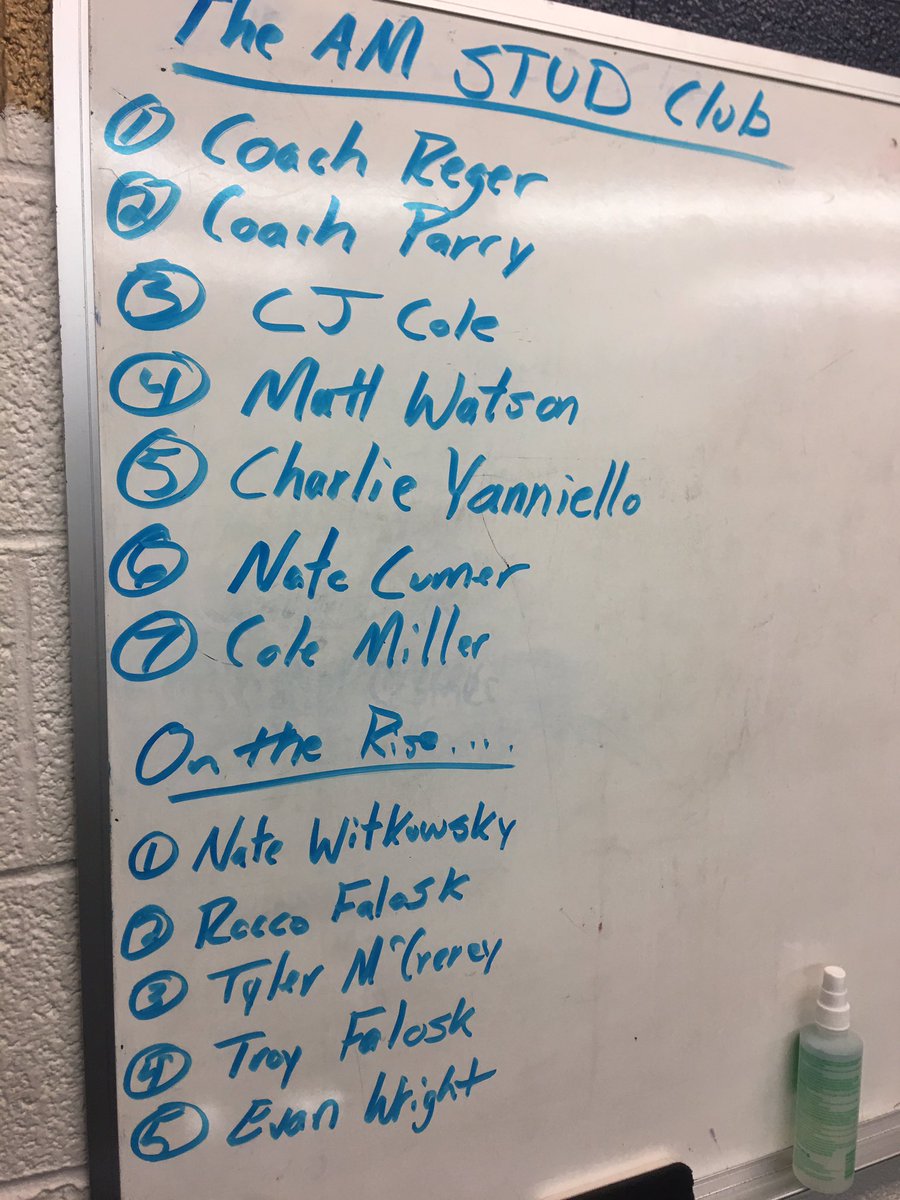 The AM STUD Club
1 Coach Reger
2 Coach Parry
3 CJ Cole
4 Matt Watson
5 Charlie Yanniello
6 Nate Cumer
7 Cole Miller
On the Rise....
1 Nate Witkowsky
2 Rocco Falosk
3 Tyler McCrerey
4 Troy Falosk
5 Evan Wright